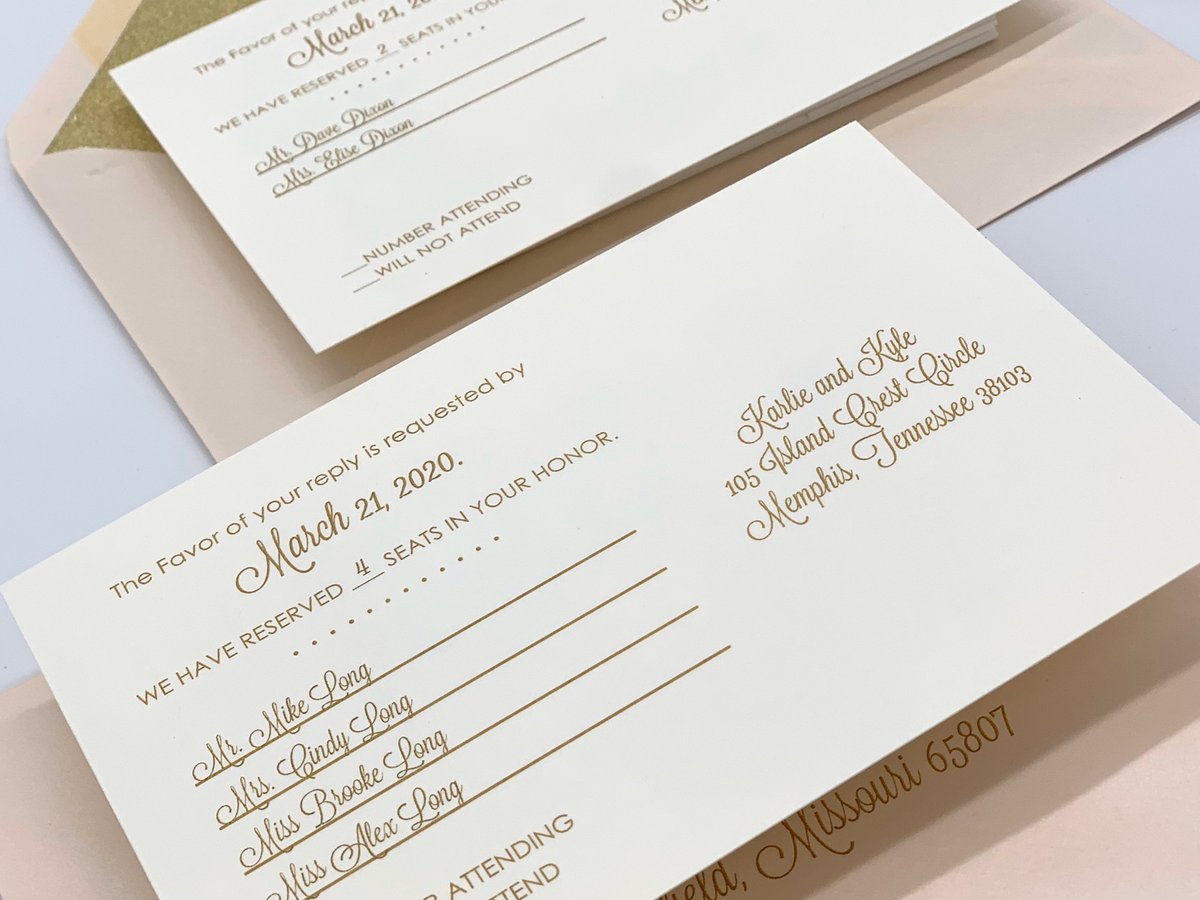 The Favor of your reply
March 21,
WE HAVE RESERVED 2 SEATS IN YOUR
Mr. Dave Dixon
Mrs. Elise Dixon
__NUMBER ATTENDING
__WILL NOT ATTEND
The Favor of your reply is requested by
March 21, 2020.
WE HAVE RESERVED 4 SEATS IN YOUR HONOR.
Mr. Mike Long
Mrs. Cindy Long
Miss Brooke Long
Miss Alex Long
ATTENDING
Karlie and Kyle
105 Island Crest Circle
Memphis, Tennessee 38103
Missouri 65807